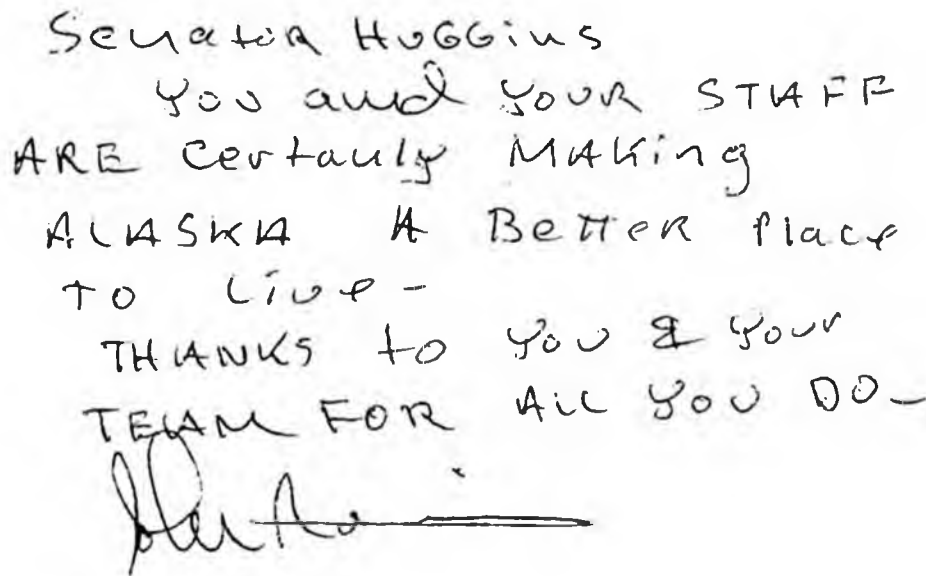 Senator HuGGins
you and youR STAFF
ARE Certanly MAKing
ALASKA A BetteR Place
TO Live-
THANKS to you & your
TEAM FOR ALL YOU DO-